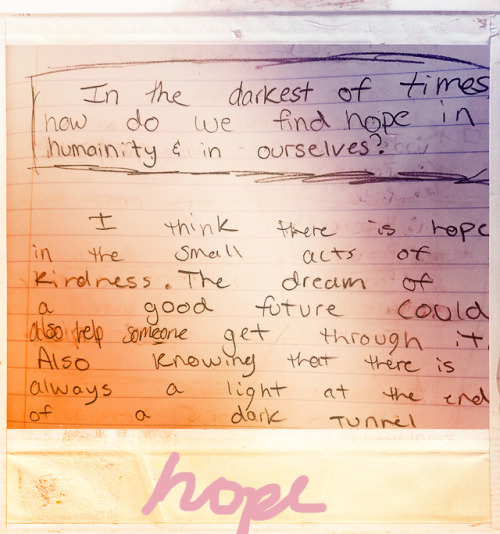 In the darkest of times
how do we find hope in
humainity & in ourselves?
I think there is hope
in the small acts of
kindness. The dream of
a good future could
also help someone get through it.
Also knowing that there is
always a light at the end
of a dark Tunnel
hope